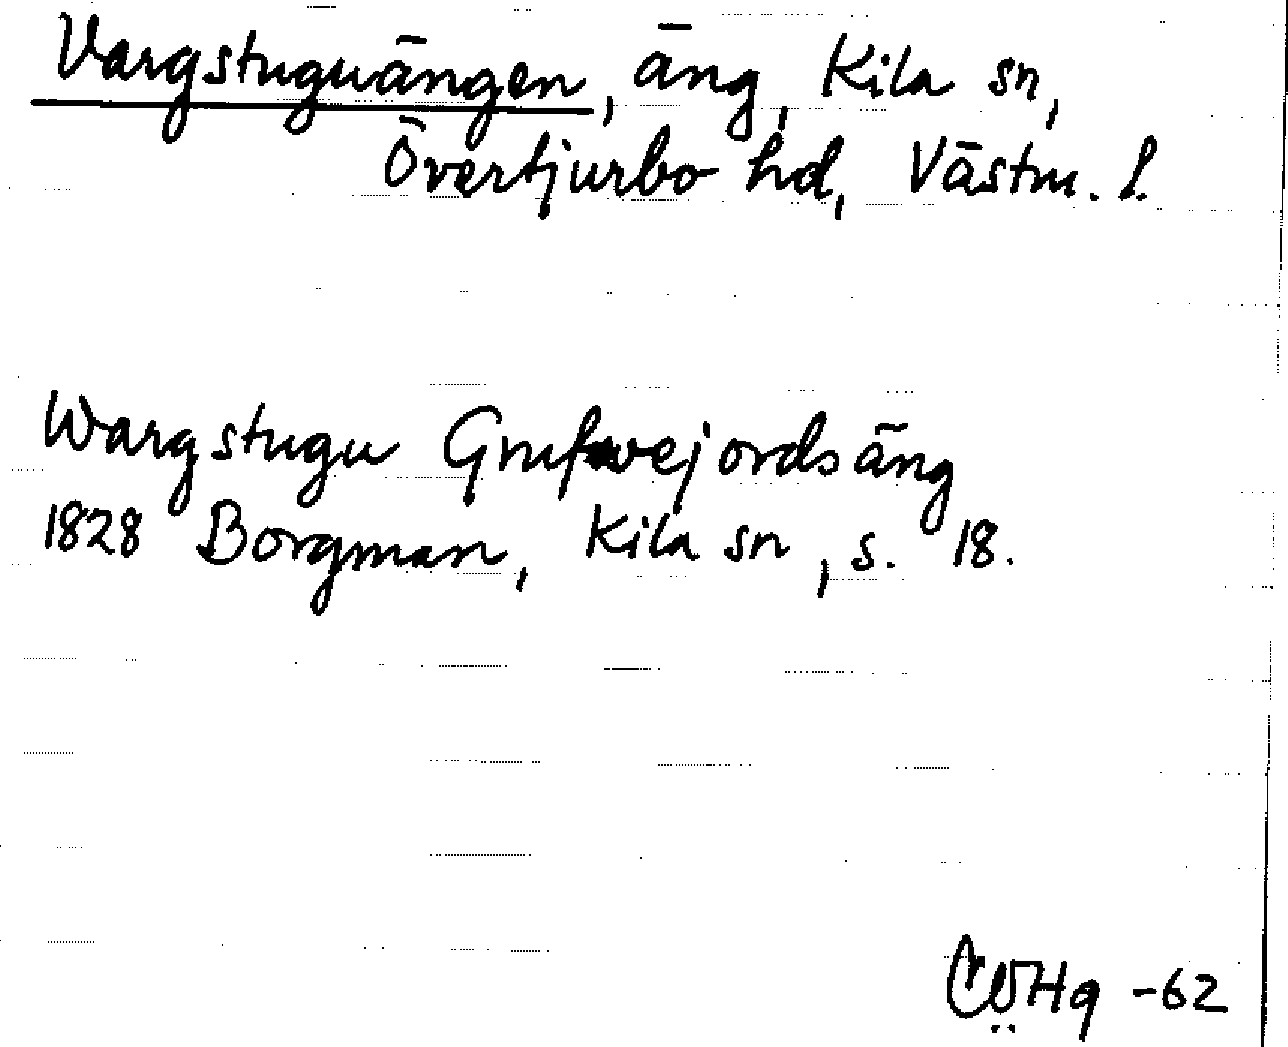 Vargstuguängen, äng, Kila sn,
Övertjurbo hd, Västm. l.
Wargstugu Grufwejordsäng
1828 Borgman, Kila sn, s. 18.
-62